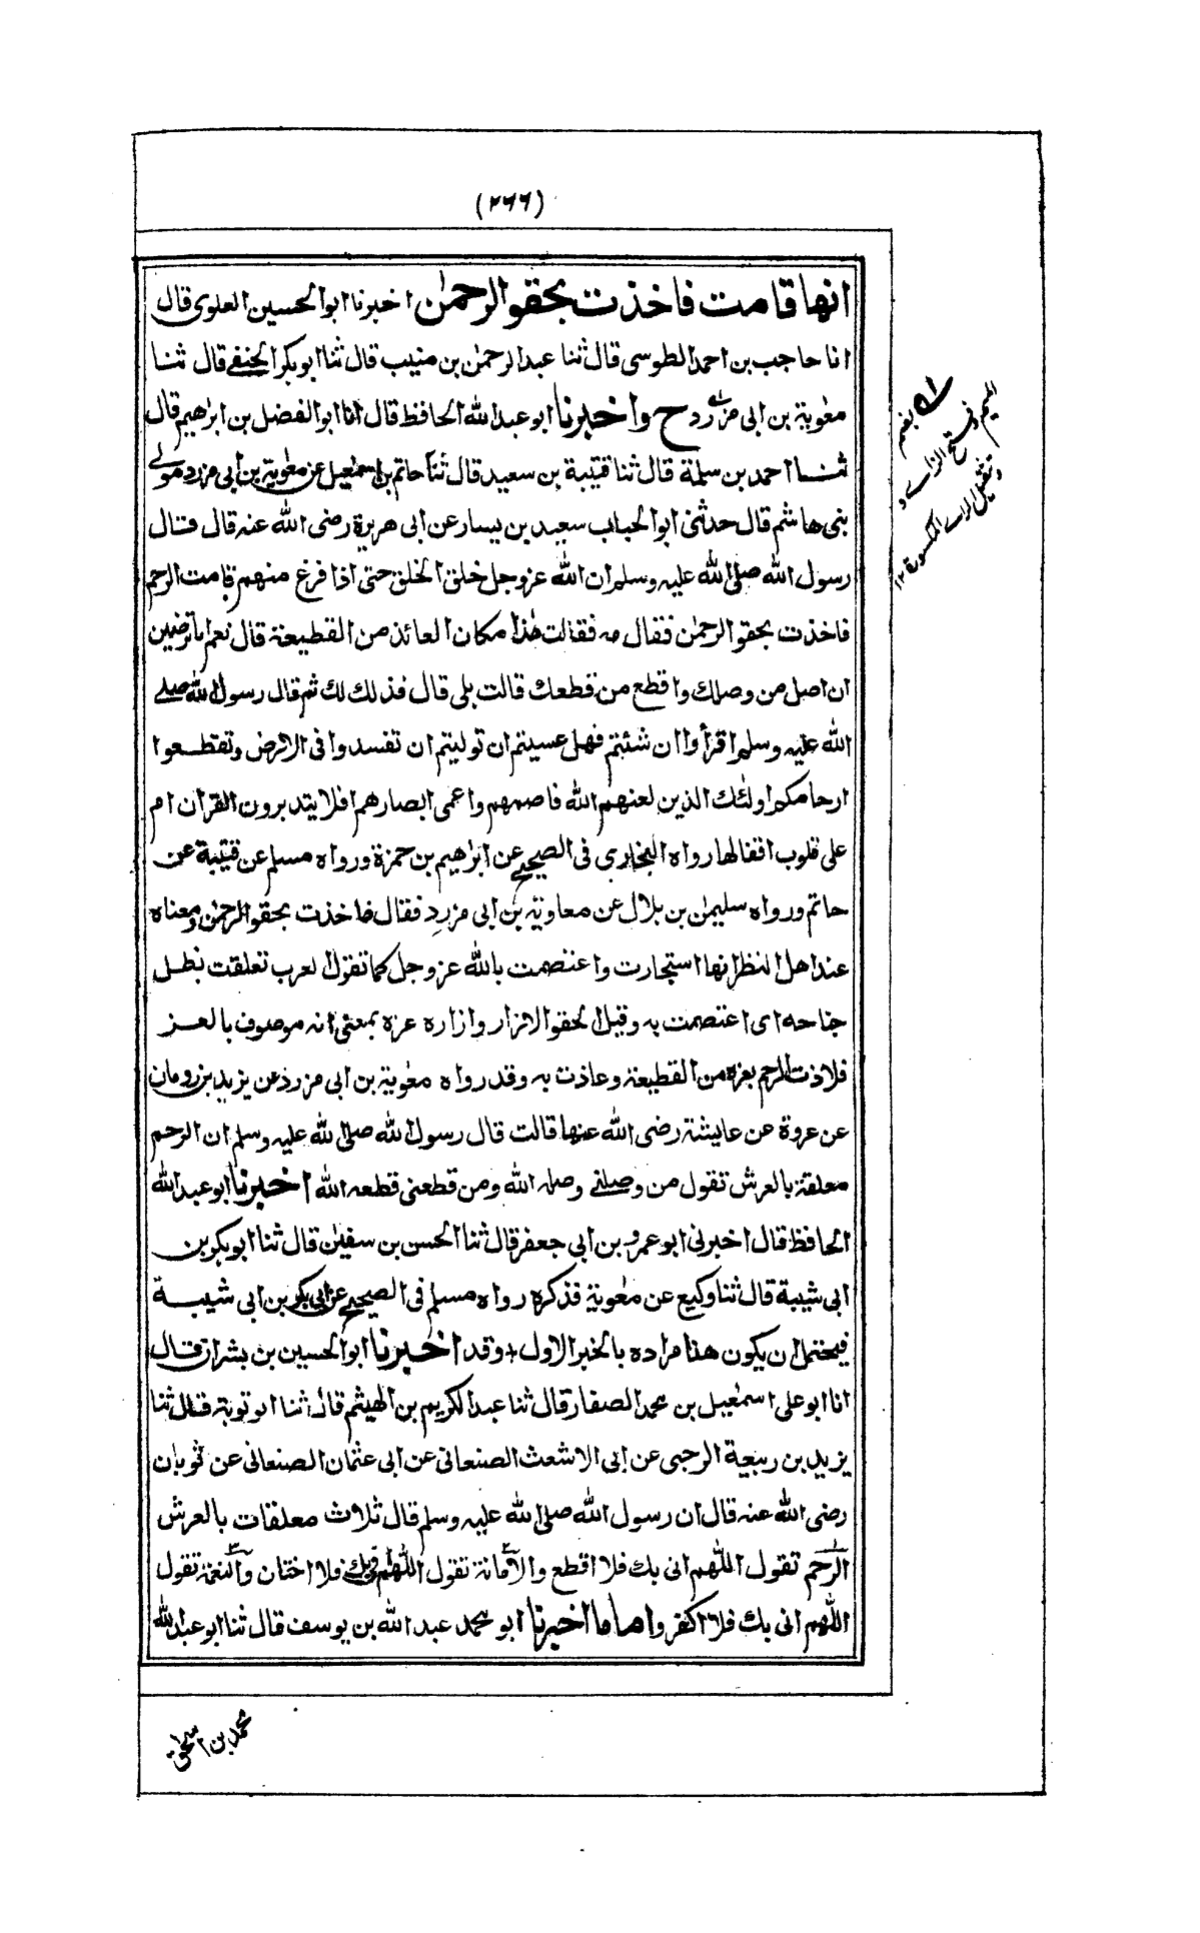 (٢٦٦)
انها قامت فاخذت بحقو الرحمٰن اخبرنا ابو الحسین العلوی قال
انا حاجب بن احمد الطوسی قال ثنا عبد الرحمٰن بن منیب قال ثنا ابو بکر الحنفے قال ثنا
معٰویة بن ابی مزرد ح واخبرنا ابو عبد الله الحافظ قال انا ابو الفضل بن ابرٰهیم قال
ثنا احمد بن سلمة قال ثنا قتیبة بن سعید قال ثنا حاتم بن اسمٰعیل عن معٰویة بن ابی مزرد مولے
بنی هاشم قال حدثنی ابو الحباب سعید بن یسار عن ابی هریرة رضی الله عنه قال قال
رسول الله صلی الله علیه وسلم ان الله عز وجل خلق الخلق حتی اذا فرغ منهم قامت الرحم
فاخذت بحقو الرحمٰن فقال مه فقالت هٰذا مکان العائذ من القطیعة قال نعم اما ترضین
ان اصل من وصلك واقطع من قطعك قالت بلی قال فذلك لك ثم قال رسول الله صلے
الله علیه وسلم اقرأوا ان شئتم فهل عسیتم ان تولیتم ان تفسدوا فی الارض وتقطعوا
ارحامکم اولئك الذین لعنهم الله فاصمهم واعمی ابصارهم افلا یتدبرون القران ام
علی قلوب اقفالها رواه البخاری فی الصحیح عن ابرٰهیم بن حمزة ورواه مسلم عن قتیبة عن
حاتم ورواه سلیمٰن بن بلال عن معاویة بن ابی مزرد فقال فاخذت بحقو الرحمٰن ومعناه
عند اهل النظر انها استجارت واعتصمت بالله عز وجل کما تقول العرب تعلقت بظل
جناحه ای اعتصمت به وقیل الحقو الازار وازاره عزه بمعنی انه موصوف بالعز
فلاذت الرحم بعزه من القطیعة وعاذت به وقد رواه معٰویة بن ابی مزرد عن یزید بن رومان
عن عروة عن عایشة رضی الله عنها قالت قال رسول الله صلی الله علیه وسلم ان الرحم
معلقة بالعرش تقول من وصلنے وصله الله ومن قطعنی قطعه الله اخبرنا ابو عبد الله
الحافظ قال اخبرنی ابو عمرو بن ابی جعفر قال ثنا الحسن بن سفیٰن قال ثنا ابو بکر بن
ابی شیبة قال ثنا وکیع عن معٰویة فذکره رواه مسلم فی الصحیح عن ابی بکر بن ابی شیبة
فیحتمل ان یکون هذا مراده بالخبر الاول + وقد اخبرنا ابو الحسین بن بشران قال
انا ابو علی اسمٰعیل بن محمد الصفار قال ثنا عبد الکریم بن الهیثم قال ثنا ابو توبة قال ثنا
یزید بن ربیعة الرحبی عن ابی الاشعث الصنعانی عن ابی عثمان الصنعانی عن ثوبان
رضی الله عنه قال ان رسول الله صلی الله علیه وسلم قال ثلاث معلقات بالعرش
الرحم تقول اللهم انی بك فلا اقطع والامانة تقول اللهم انی بك فلا اختان والنعمة تقول
اللهم انی بك فلا اکفر واما ما اخبرنا ابو محمد عبد الله بن یوسف قال ثنا ابو عبد الله
بضم
المیم وفتح الزاے و
تثقیل الراے المکسورة ١٢
محمد بن اسحٰق